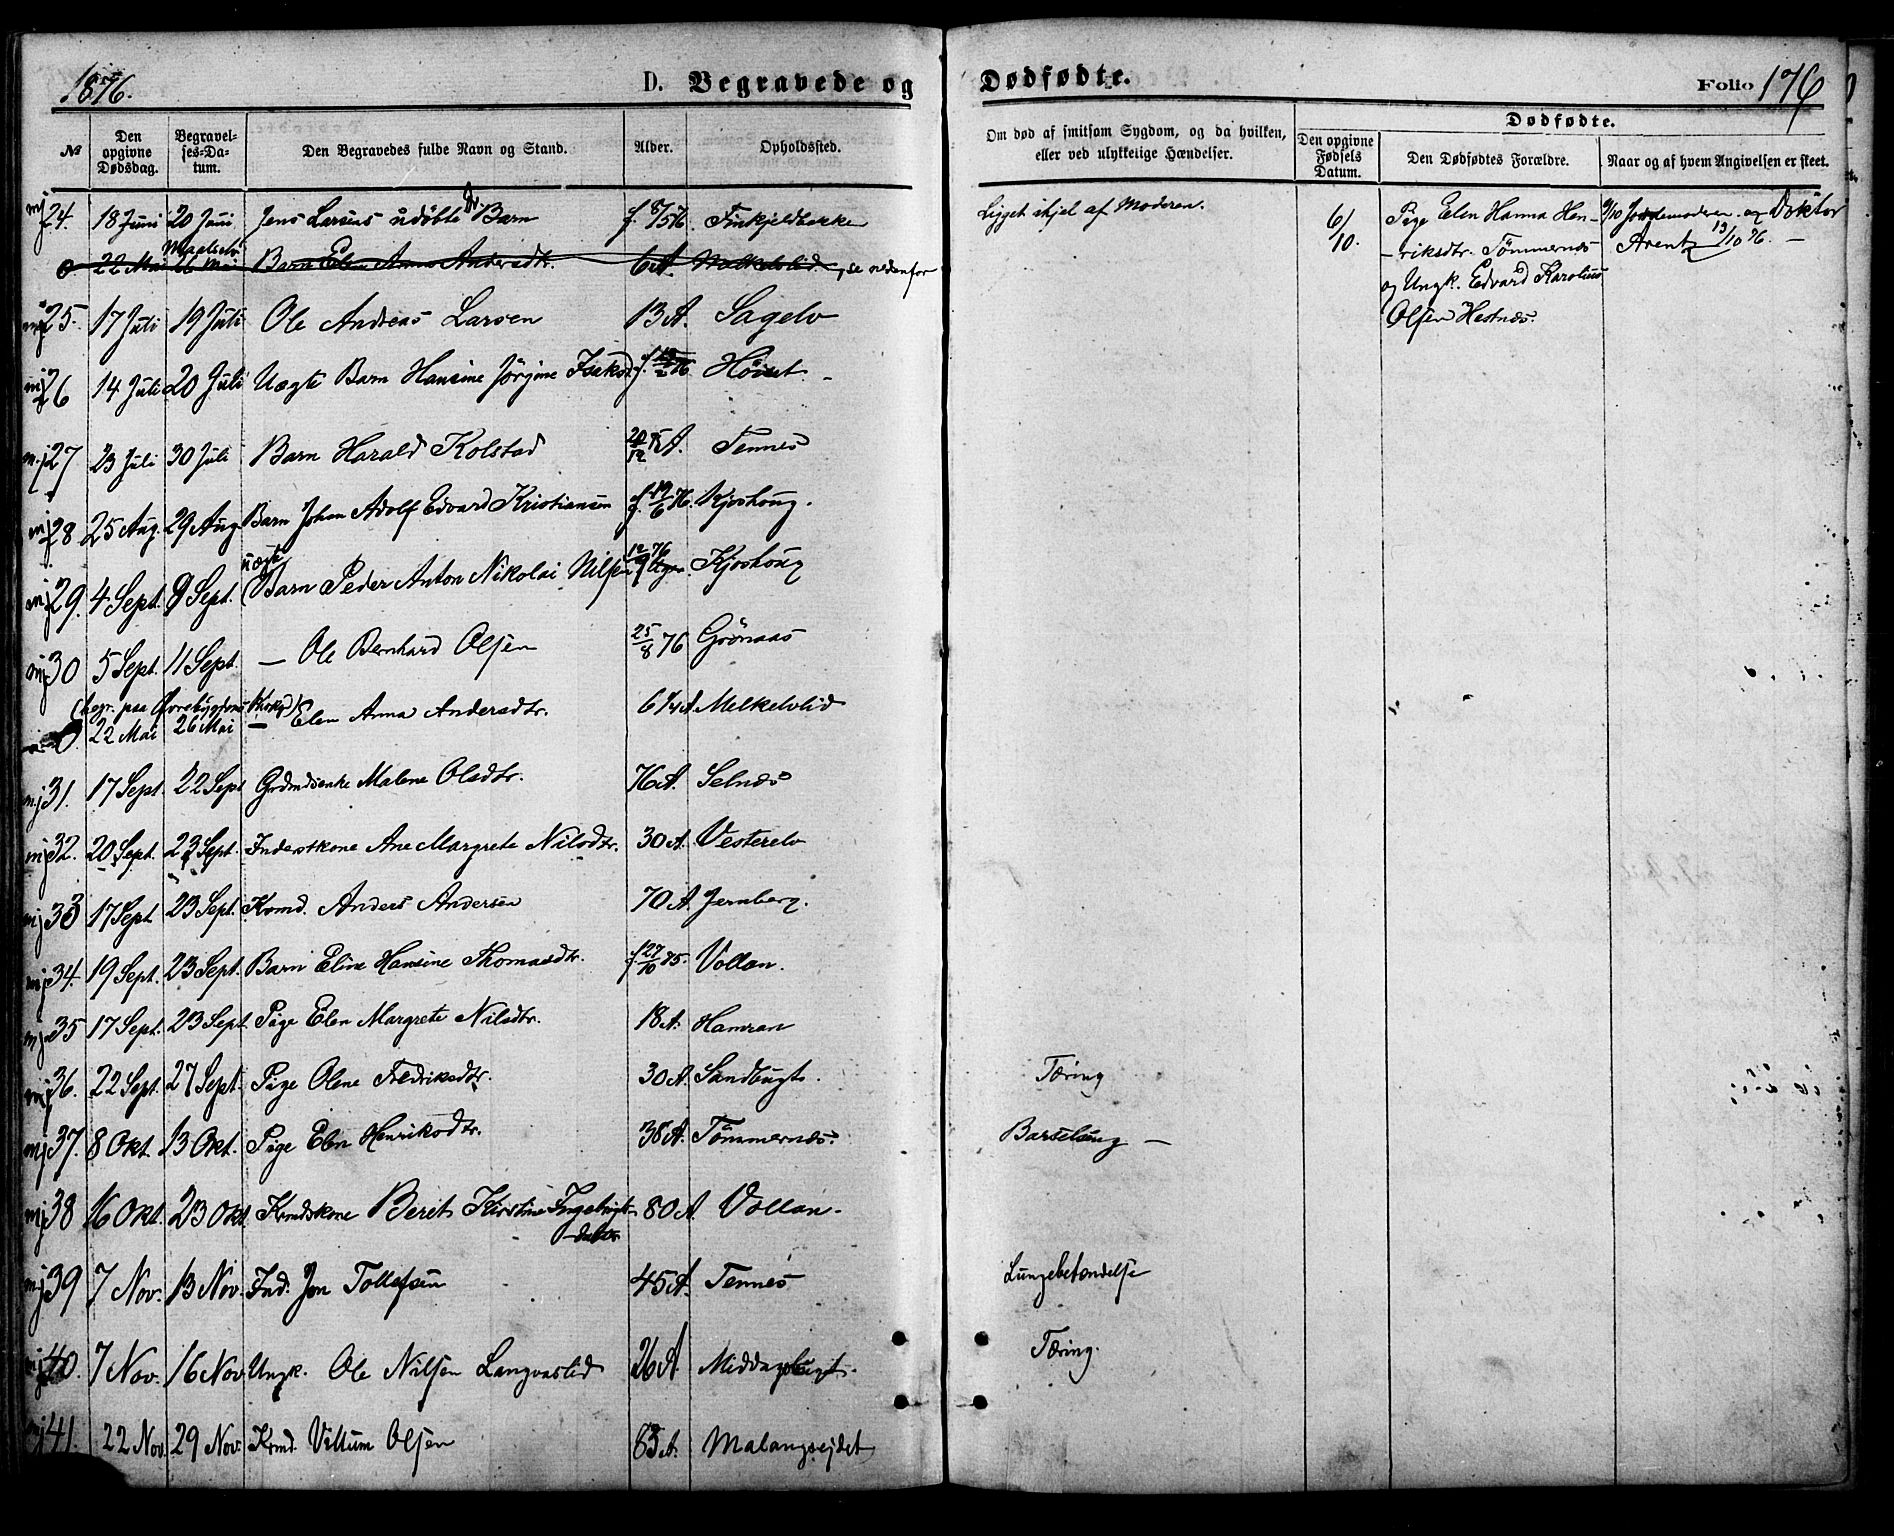 1876.
D. Begravede og Dødfødte.
Folio 176
№
Den opgivne Dødsdag.
Begravelses-Datum.
Den Begravedes fulde Navn og Stand.
Alder.
Opholdssted.
Om død af smitsom Sygdom, og da hvilken, eller ved ulykkelige Hændelser.
Dødfødte.
Den opgivne Fødsels Datum.
Den Dødfødtes Forældre.
Naar og af hvem Angivelsen er skeet.
24. 18 Juni 20 Juni Jens Larsens udøbte Barn f. 8/5 76 Finkjeldbakke Ligget ihjel af Moderen.
0 22 Mai 26 Mai Barn Elen Anna Andersdtr. 6 A. Melkelvlid, se nedenfor
25. 17 Juli 19 Juli Ole Andreas Larsen 13 A. Sagelv
26 14 Juli 20 Juli Uægte Barn Hansine Jørgine Isaksd. Høiset
27 23 Juli 30 Juli Barn Harald Kolstad Tennes
28 25 Aug. 29 Aug. Barn Johan Adolf Edvard Kristiansen f. 19/6 76. Kjoshoug.
uægte
29. 4 Sept. 9 Sept. Barn Peder Anton Nikolai Nilsen Kjoshoug
30 5 Sept. 11 Sept. — Ole Bernhard Olsen 25/8 76 Grønaas
(begr. paa Øvrebygdens
0 22 Mai 26 Mai — Elen Anna Andersdtr. Melkelvlid
31. 17 Sept. 22 Sept Grdmdsenke Malene Olsdtr. 76 A. Selnæs
32. 20 Sept. 23 Sept. Inderstkone Ane Margrete Nilsdtr. 30 A. Vesterelv
33 17 Sept 23 Sept. Kvmd. Anders Andersen 70 A. Jernberg.
34. 19 Sept. 23 Sept. Barn Eline Hansine Thomasdtr. f. 27/10 75. Vollan.
35 17 Sept. 23 Sept. Pige Elen Margrete Nilsdtr. 18 A. Hamran
36. 22 Sept. 27 Sept. Pige Olene Fredriksdtr. 30 A. Sandbugt. Tæring
37. 8 Okt. 13 Okt. Pige Elen Henriksdtr. 38 A. Tömmernæs. Barselseng —
38 16 Okt. 23 Okt. Kvmdskone Berit Kirstine Ingebrigts-
datter 80 A. Vollan.
39 7 Nov. 13 Nov. Ind. Jon Tollefsen 45 A. Tennes Lungebetændelse
40. 7 Nov. 16 Nov. Ungk. Ole Nilsen Langvaslid 26 A Middagsbugt. Tæring.
41. 22 Nov. 29 Nov. Kvmd. Villum Olsen 83 A. Malangseidet
6/10.
Pige Elen Hanna Hen-
riksdtr. Tømmernæs
og Ungk. Edvard Karolius
Olsen Hestnæs.
9/10 Jordemoderen og Doktor
Arentz 13/10 76. —